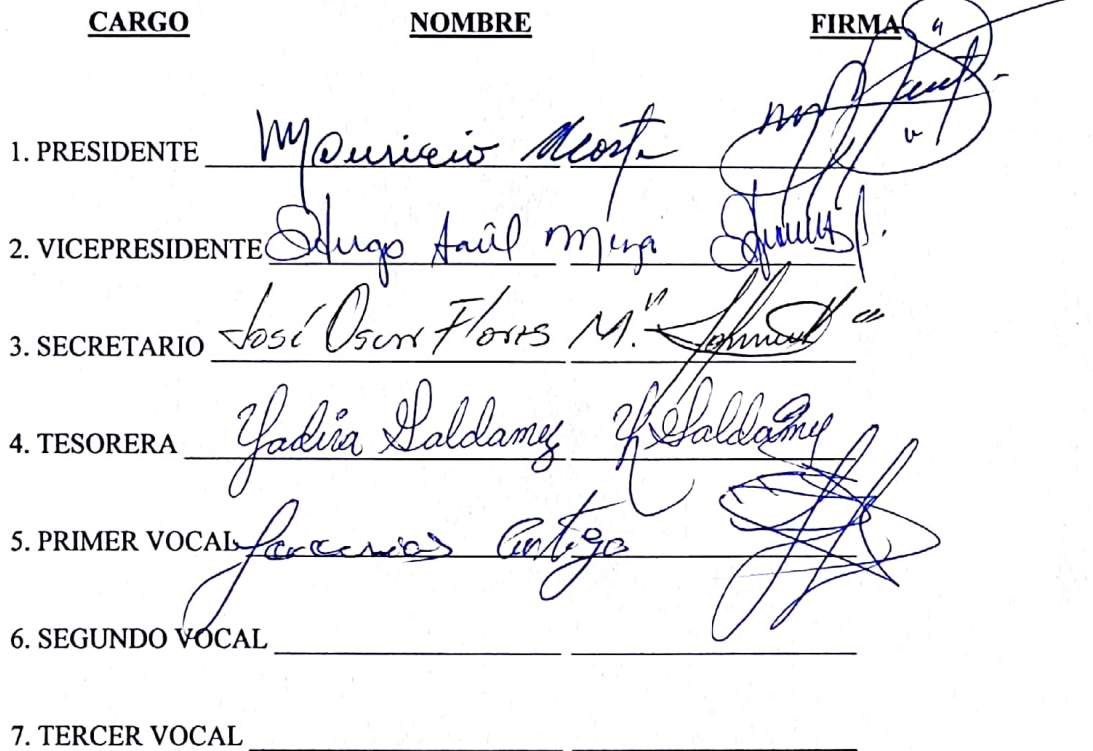 CARGO NOMBRE FIRMA
1. PRESIDENTE Mauricio Acosta
2. VICEPRESIDENTE Hugo Saúl Mira
3. SECRETARIO José Oscar Flores M.
4. TESORERA Yadira Saldamez Y Saldamez
5. PRIMER VOCAL
6. SEGUNDO VOCAL
7. TERCER VOCAL